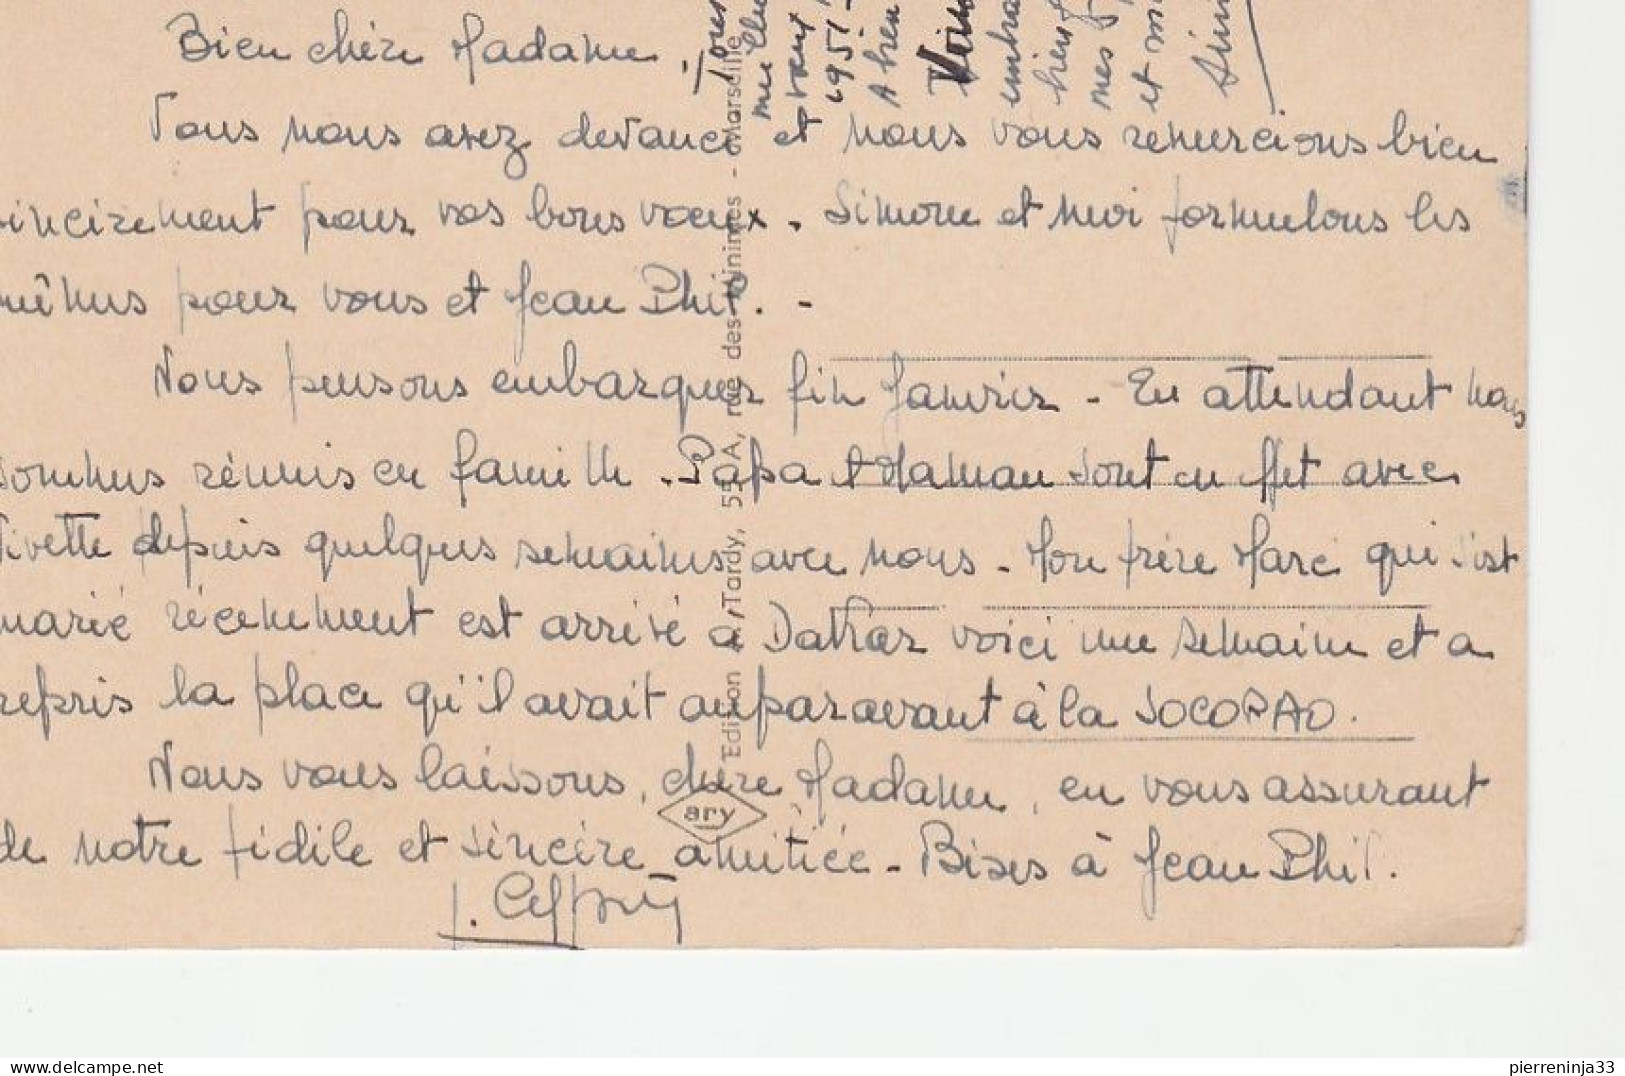 Bien chère Madame,
Vous nous avez devancé et nous vous remercions bien
sincèrement pour vos bons voeux. Simone et moi formulons les
mêmes pour vous et Jean Phil. -
Nous pensons embarquer fin Janvier - En attendant nous
sommes réunis en famille. Papa et Maman sont en effet avec
depuis quelques semaines avec nous - Mon frère Marc qui s'est
marié récemment est arrivé à Dakar voici une semaine et a
repris la place qu'il avait auparavant à la SOCOPAO.
Nous vous laissons, chère Madame, en vous assurant
de notre fidèle et sincère amitiée - Bises à Jean Phil.
J.
1951 -
A bien
mes
et
Edition Tardy, 51 A, rue des Minimes - Marseille
ary
pierreninja33